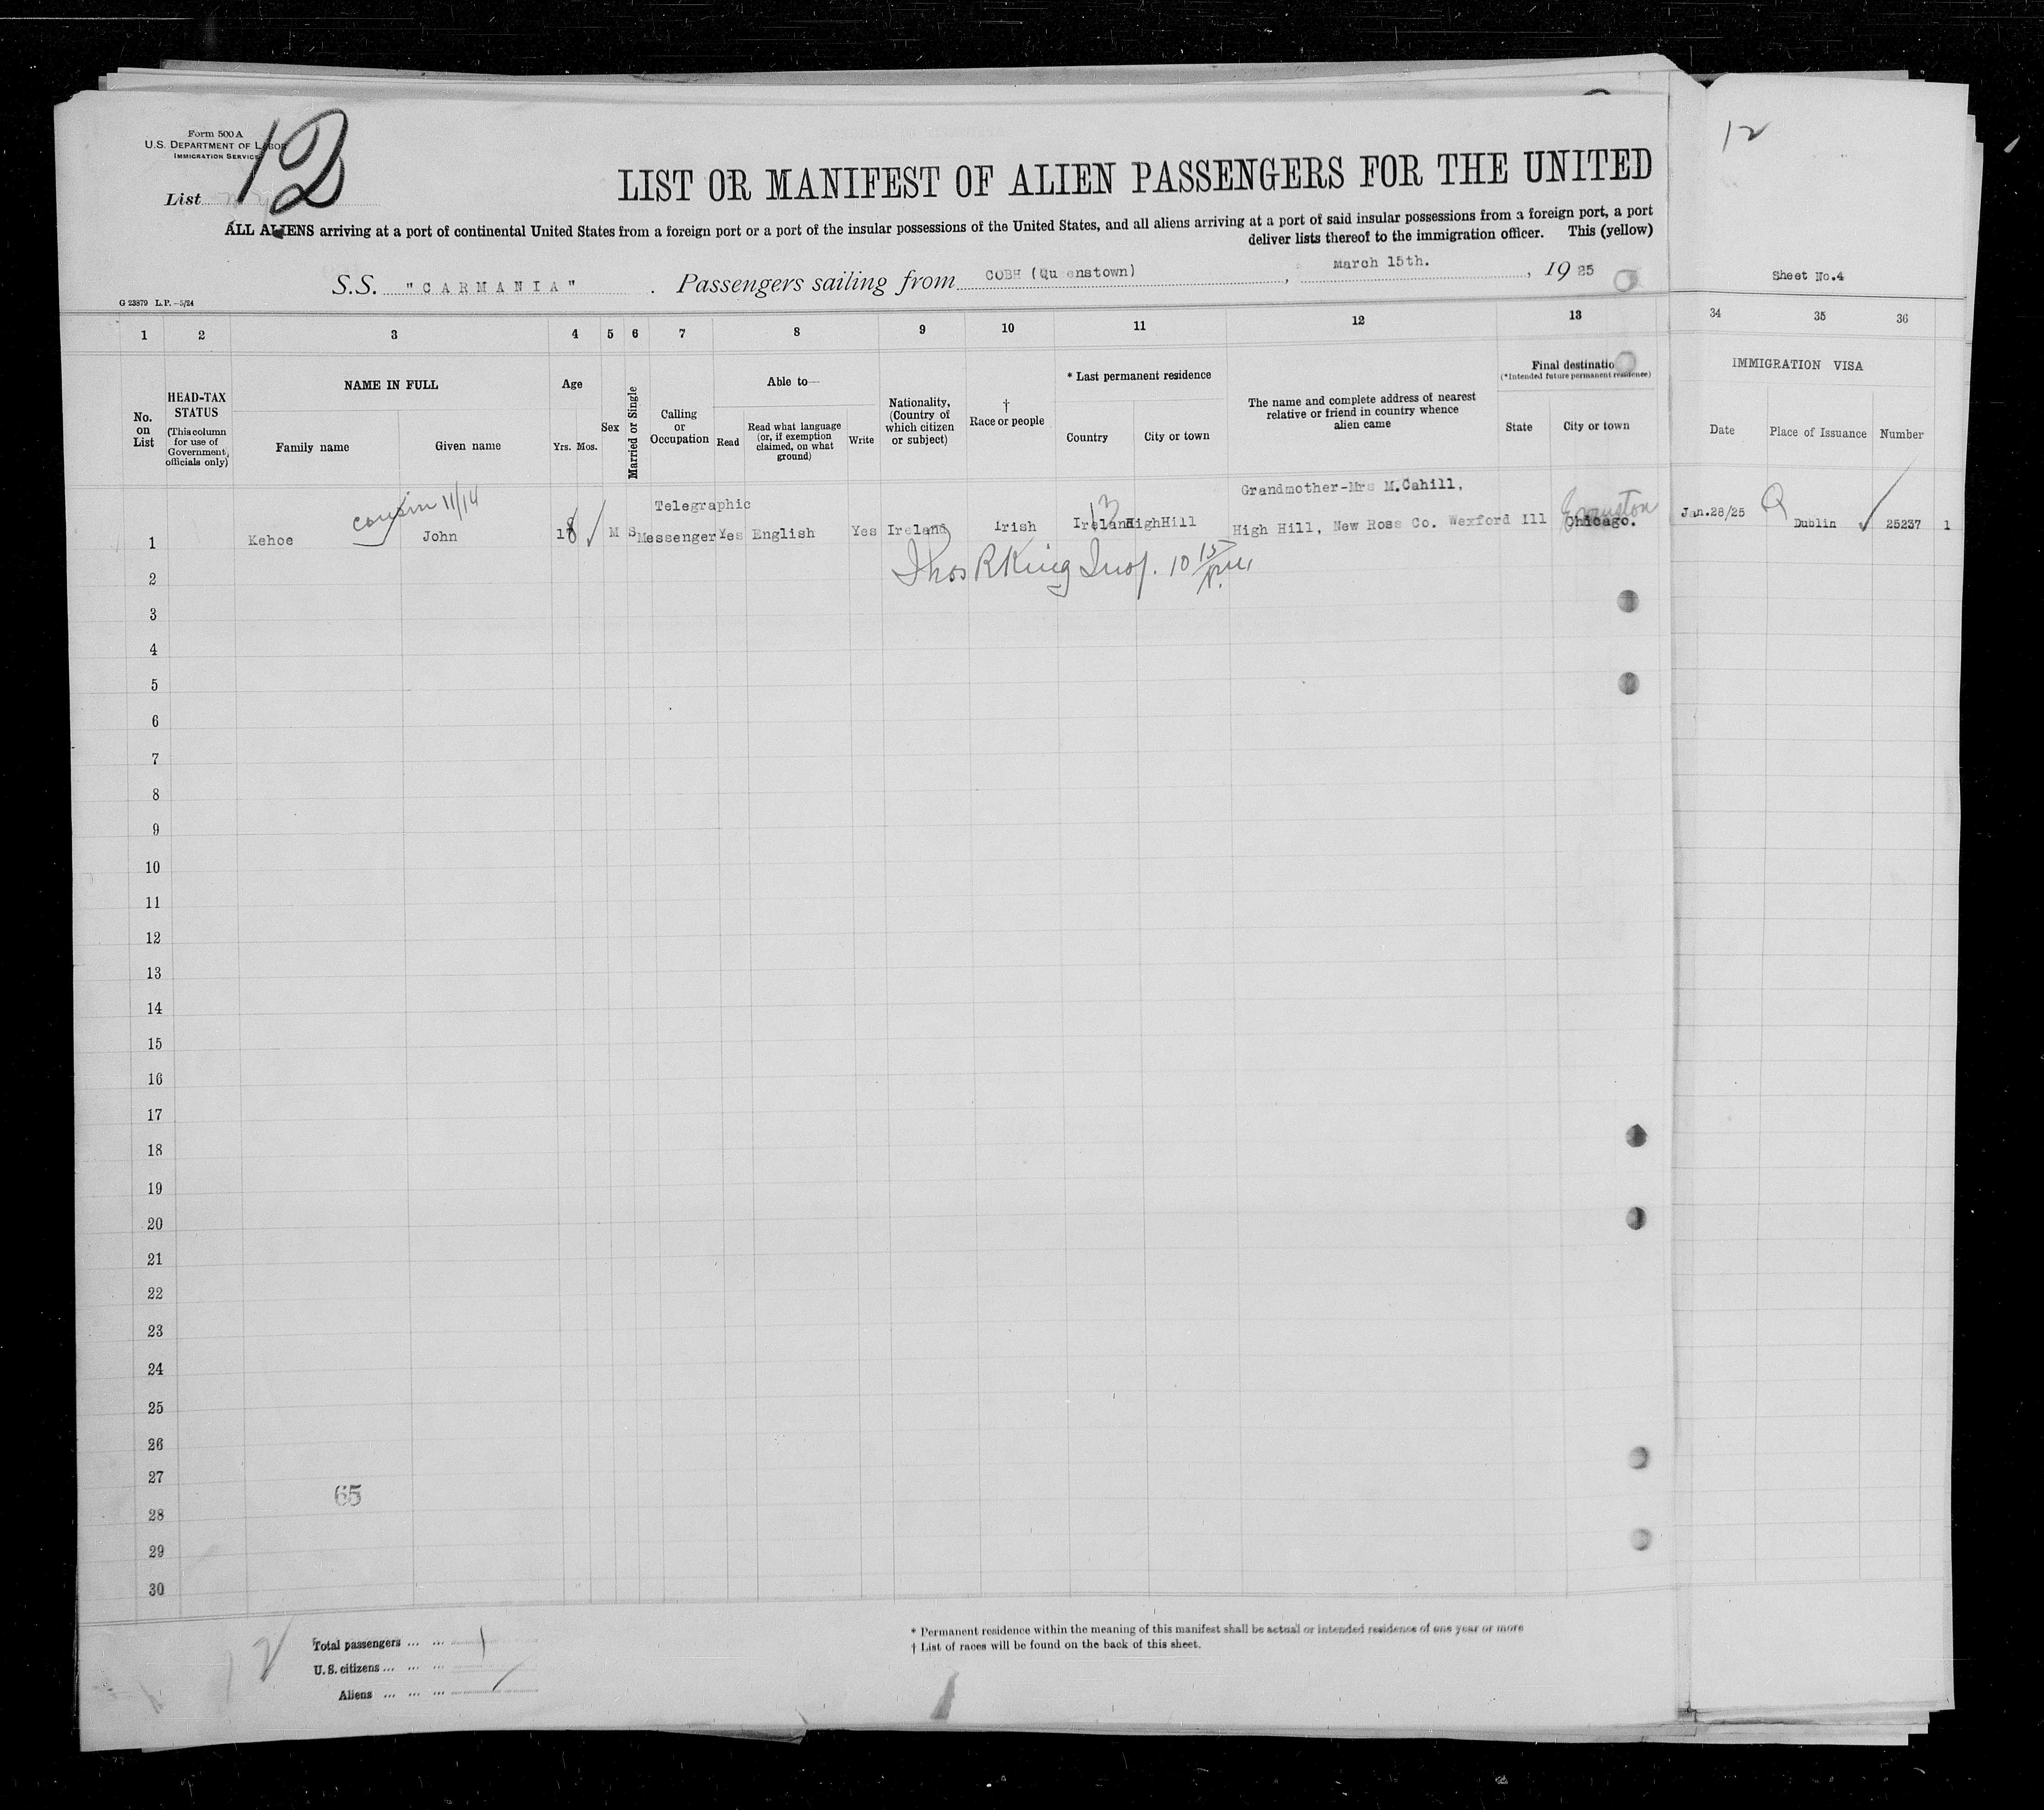 Form 500 A
U.S. DEPARTMENT OF LABOR
IMMIGRATION SERVICE
List
12
12
LIST OR MANIFEST OF ALIEN PASSENGERS FOR THE UNITED
ALL ALIENS arriving at a port of continental United States from a foreign port or a port of the insular possessions of the United States, and all aliens arriving at a port of said insular possessions from a foreign port, a port
deliver lists thereof to the immigration officer. This (yellow)
S.S. "CARMANIA". Passengers sailing from COBH (Qu enstown), March 15th., 1925
Sheet No.4
G 23879 L.P. –5/24
1 2 3 4 5 6 7 8 9 10 11 12 13 34 35 36
No. on List
HEAD-TAX STATUS
(This column for use of Government officials only)
NAME IN FULL
Family name
Given name
Age
Yrs. Mos.
Sex
Married or Single
Calling or Occupation
Able to—
Read
Read what language (or, if exemption claimed, on what ground)
Write
Nationality, (Country of which citizen or subject)
† Race or people
* Last permanent residence
Country
City or town
The name and complete address of nearest relative or friend in country whence alien came
Final destinatio
(*Intended future permanent residence)
State
City or town
IMMIGRATION VISA
Date
Place of Issuance
Number
cousin 11/14
Telegraphic
Grandmother-Mrs M.Cahill,
13
Evanston
1 Kehoe John 18 M S Messenger Yes English Yes Ireland Irish Ireland HighHill High Hill, New Ross Co. Wexford Ill Chicago. Jan.28/25 Q Dublin 25237 1
Thos R King Insp. 10 15 P.M.
2
3
4
5
6
7
8
9
10
11
12
13
14
15
16
17
18
19
20
21
22
23
24
25
26
27
65
28
29
30
Total passengers ... ... 1
U.S. citizens ... ... ...
Aliens ... ... ...
* Permanent residence within the meaning of this manifest shall be actual or intended residence of one year or more
† List of races will be found on the back of this sheet.